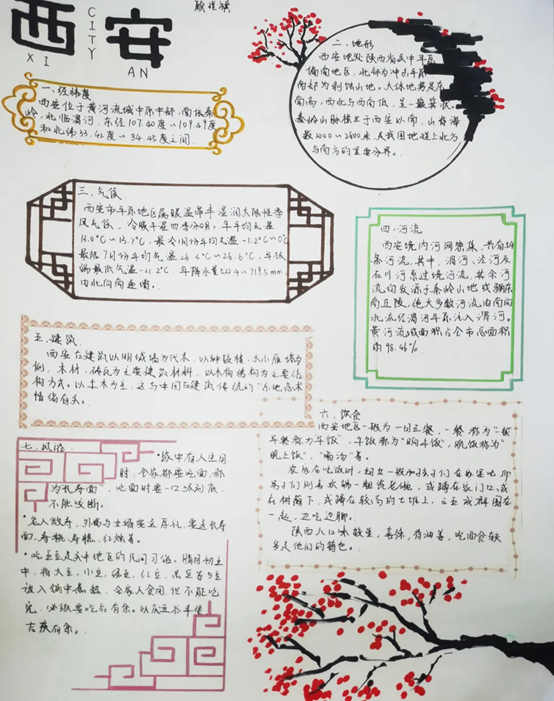 西安
CITY
XI AN
一、经纬度
西安位于黄河流域中部,南依秦
岭,北临渭河,东经107.40度~109.49度
和北纬33.42度~34.45度之间.
二、地形
西安地处陕西省关中平原
偏南地区,北部为冲积平原
南部为剥蚀山地。大体地势是东
南高,西北与西南低,呈一簸箕状。
秦岭山脉横亘于西安以南,山脊海
拔2000~2800米,是我国地理上北方
与南方的重要分界。
三、气候
西安市平原地区属暖温带半湿润大陆性季
风气候,冷暖干湿四季分明。年平均气温
13.0℃~13.7℃,最冷1月份平均气温-1.2℃~0℃
最热7月份平均气温26.3℃~26.6℃,年极
端最低气温-21.2℃,年降水量522.4~719.5mm
由北向南递增.
四、河流
西安境内河网密集,共有54
条河流,其中,渭河,泾河及
石川河系过境河流,其余河
流均发源于秦岭山地或骊山
南丘陵,绝大多数河流由南向
北流经渭河平原,注入渭河.
黄河流域面积占全市总面积
的98.46%.
五、建筑
西安古建筑以明城墙为代表,以钟鼓楼,大小雁塔为
例,木材,砖瓦为主要建筑材料,以木构结构为主要结
构方式。以土木为主,这与中国古建筑传统的"
情结有关。
六、饮食
西安地区一般为一日三餐,一餐称为"
早餐称为早饭",午饭都为"晌午饭",晚饭称为"
晚上饭","喝汤"等。
农忙在吃饭时,妇女一般和孩子们在
男子们则喜欢端一粗瓷老碗,或蹲在家门口,或
在树荫下,或蹲在较高的土堆上,三五成群围在
一起,边吃边聊。
陕西人口味较重,喜酸,有油香,吃面食较
多是他们的特色。
七、风俗
·家中有人生日
时,全家都要吃面,称
为长寿面",吃面时要一口吃到底
不能咬断.
·老人做寿,外甥与女婿要送厚礼,要送长寿
面,寿桃,寿糕,红烛等。
·吃五豆是关中地区的民间习俗。腊月初五
中,将大豆,小豆,绿豆,红豆,黑豆等
放入锅中煮熟,全家人食用,但不能吃
完,必须要吃后有余。以庆
有余。